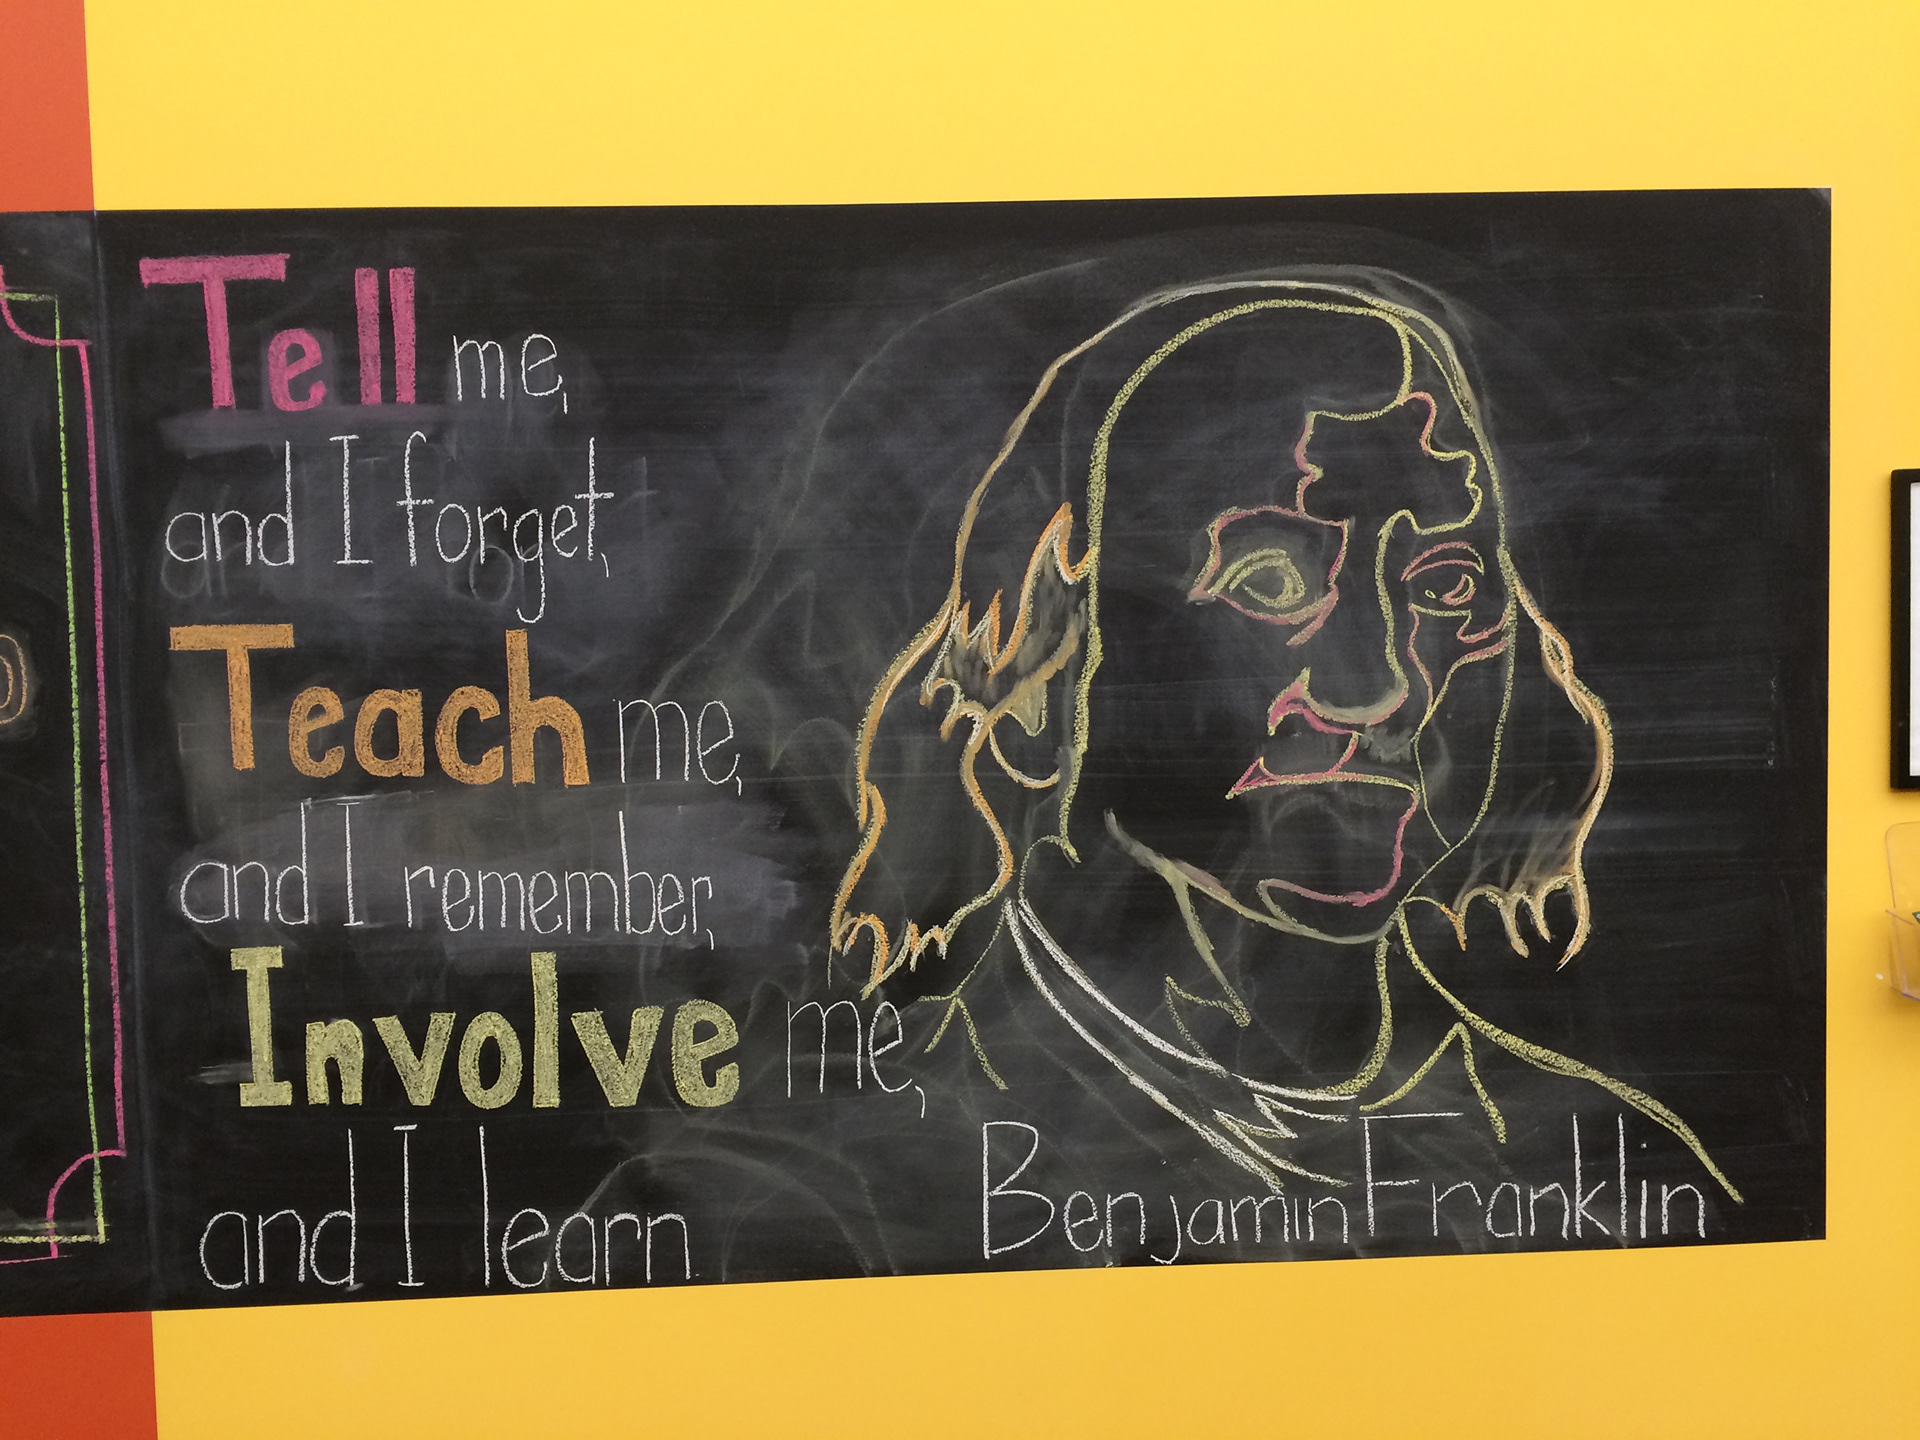 Tell me,
and I forget,
Teach me,
and I remember,
Involve me,
and I learn
Benjamin Franklin